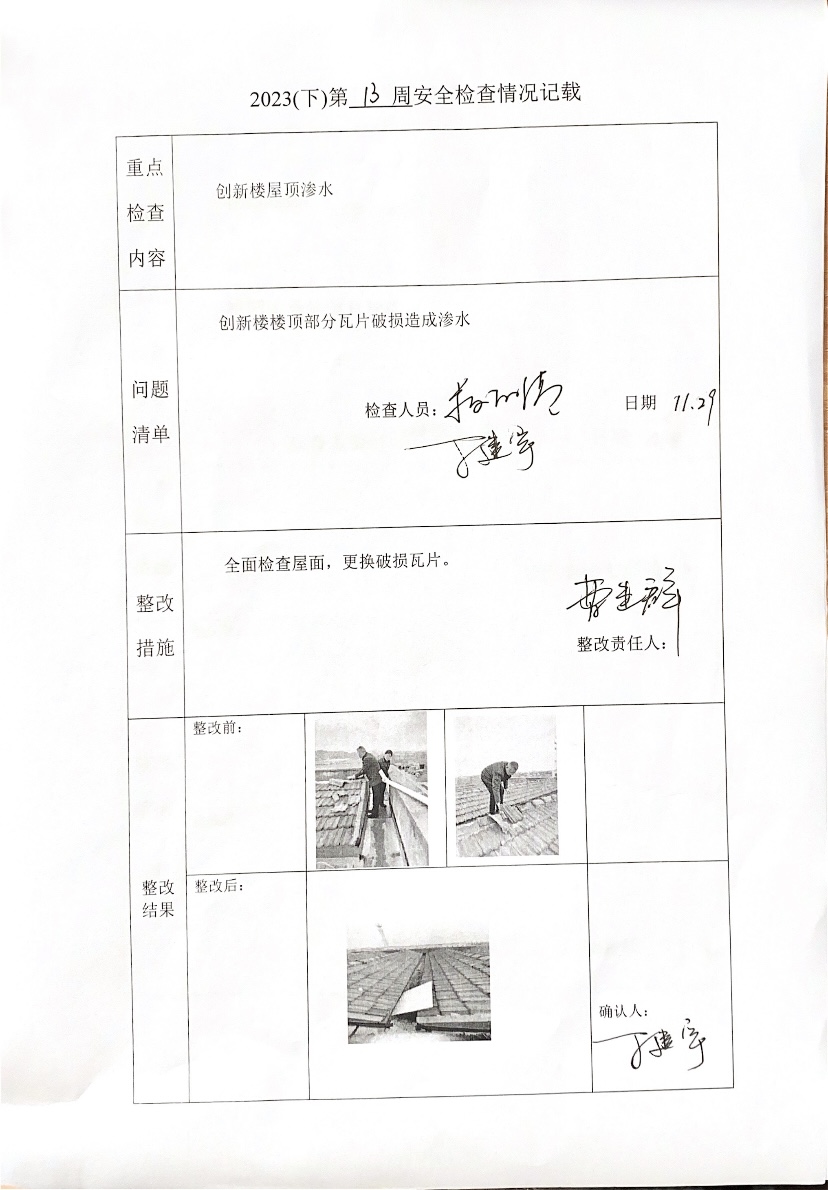 2023(下)第 13 周安全检查情况记载
重点
检查
内容
创新楼屋顶渗水
问题
清单
创新楼楼顶部分瓦片破损造成渗水
检查人员:
日期 11.29
丁建宇
整改
措施
全面检查屋面，更换破损瓦片。
整改责任人:
整改
结果
整改前:
整改后:
确认人:
丁建宇